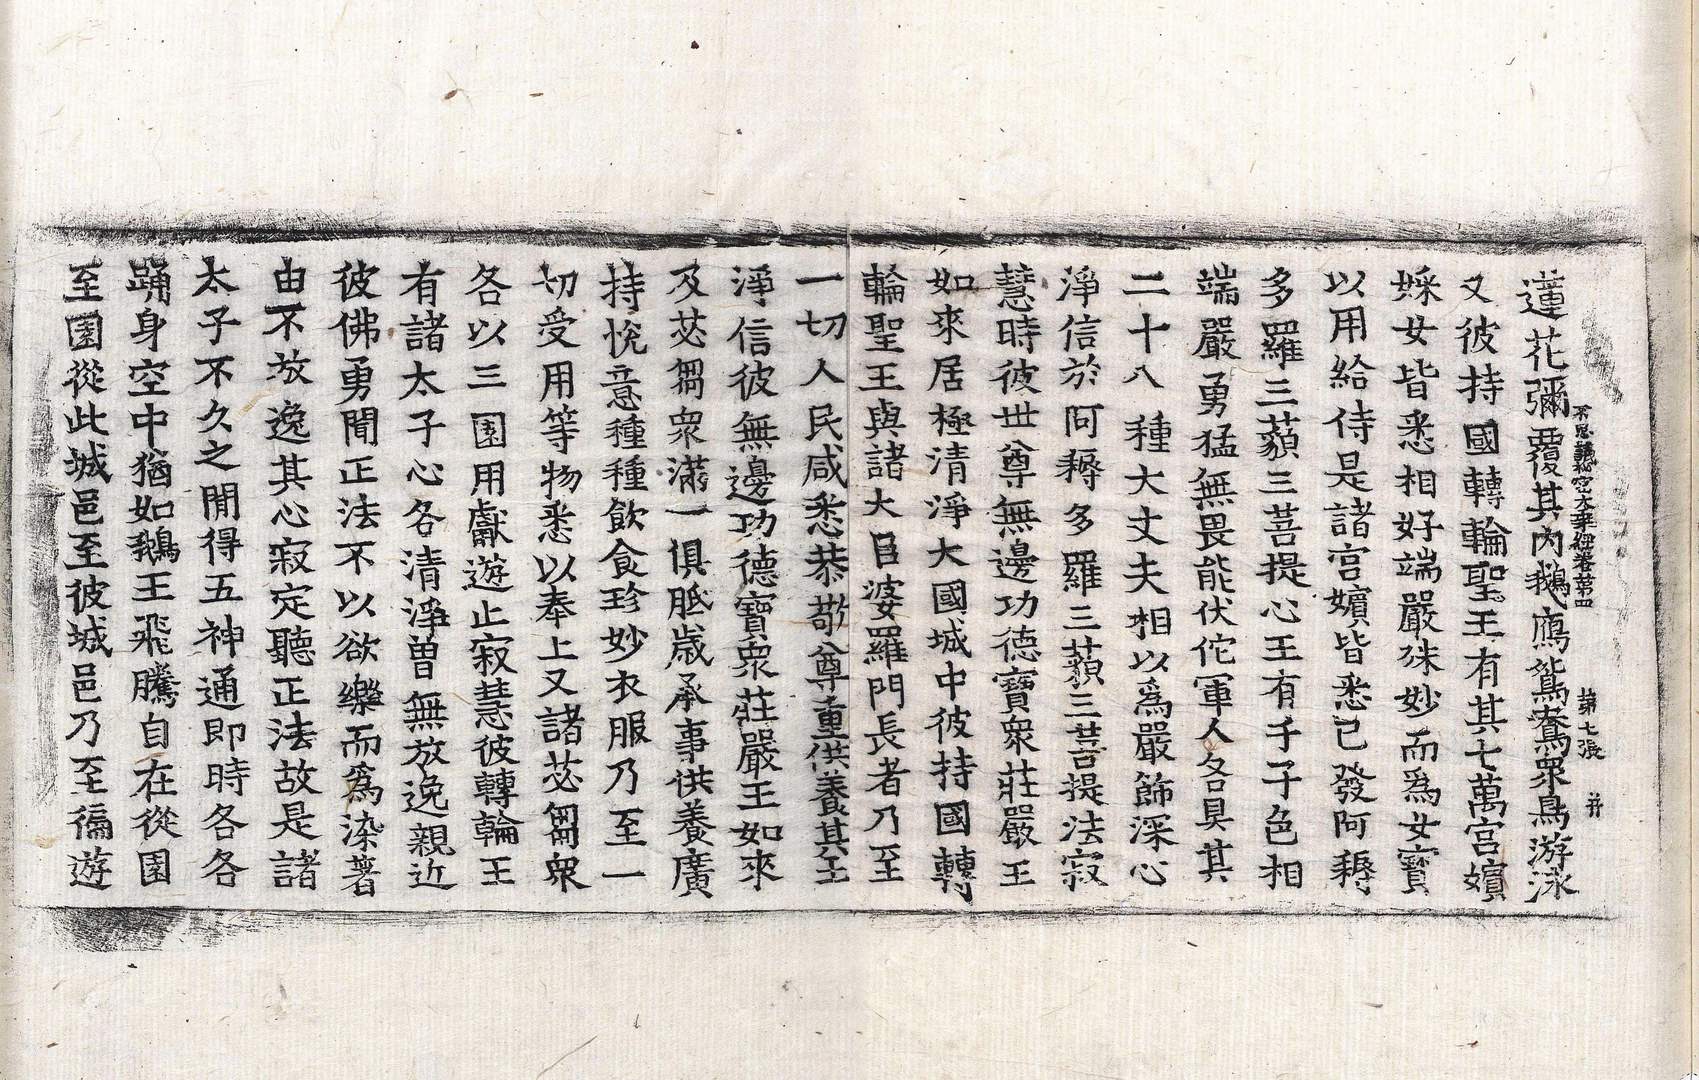 蓮花彌覆其內鵝鴈鴛鴦衆鳥游泳
不思議秘密大乘經卷第四 第七張 并
又彼持國轉輪聖王有其七萬宮嬪
婇女皆悉相好端嚴殊妙而爲女寶
以用給侍是諸宮嬪皆悉已發阿耨
多羅三藐三菩提心王有千子色相
端嚴勇猛無畏能伏佗軍人各具其
二十八種大丈夫相以爲嚴飾深心
淨信於阿耨多羅三藐三菩提法寂
慧時彼世尊無邊功德寶衆莊嚴王
如來居極清淨大國城中彼持國轉
輪聖王與諸大臣婆羅門長者乃至
一切人民咸悉恭敬尊重供養其王
淨信彼無邊功德寶衆莊嚴王如來
及苾芻衆滿一俱胝歲承事供養廣
持悅意種種飮食珍妙衣服乃至一
切受用等物悉以奉上又諸苾芻衆
各以三園用獻遊止寂慧彼轉輪王
有諸太子心各清淨曽無放逸親近
彼佛勇聞正法不以欲樂而爲染著
由不放逸其心寂定聽正法故是諸
太子不久之閒得五神通即時各各
踊身空中猶如鵝王飛騰自在從園
至園從此城邑至彼城邑乃至徧遊